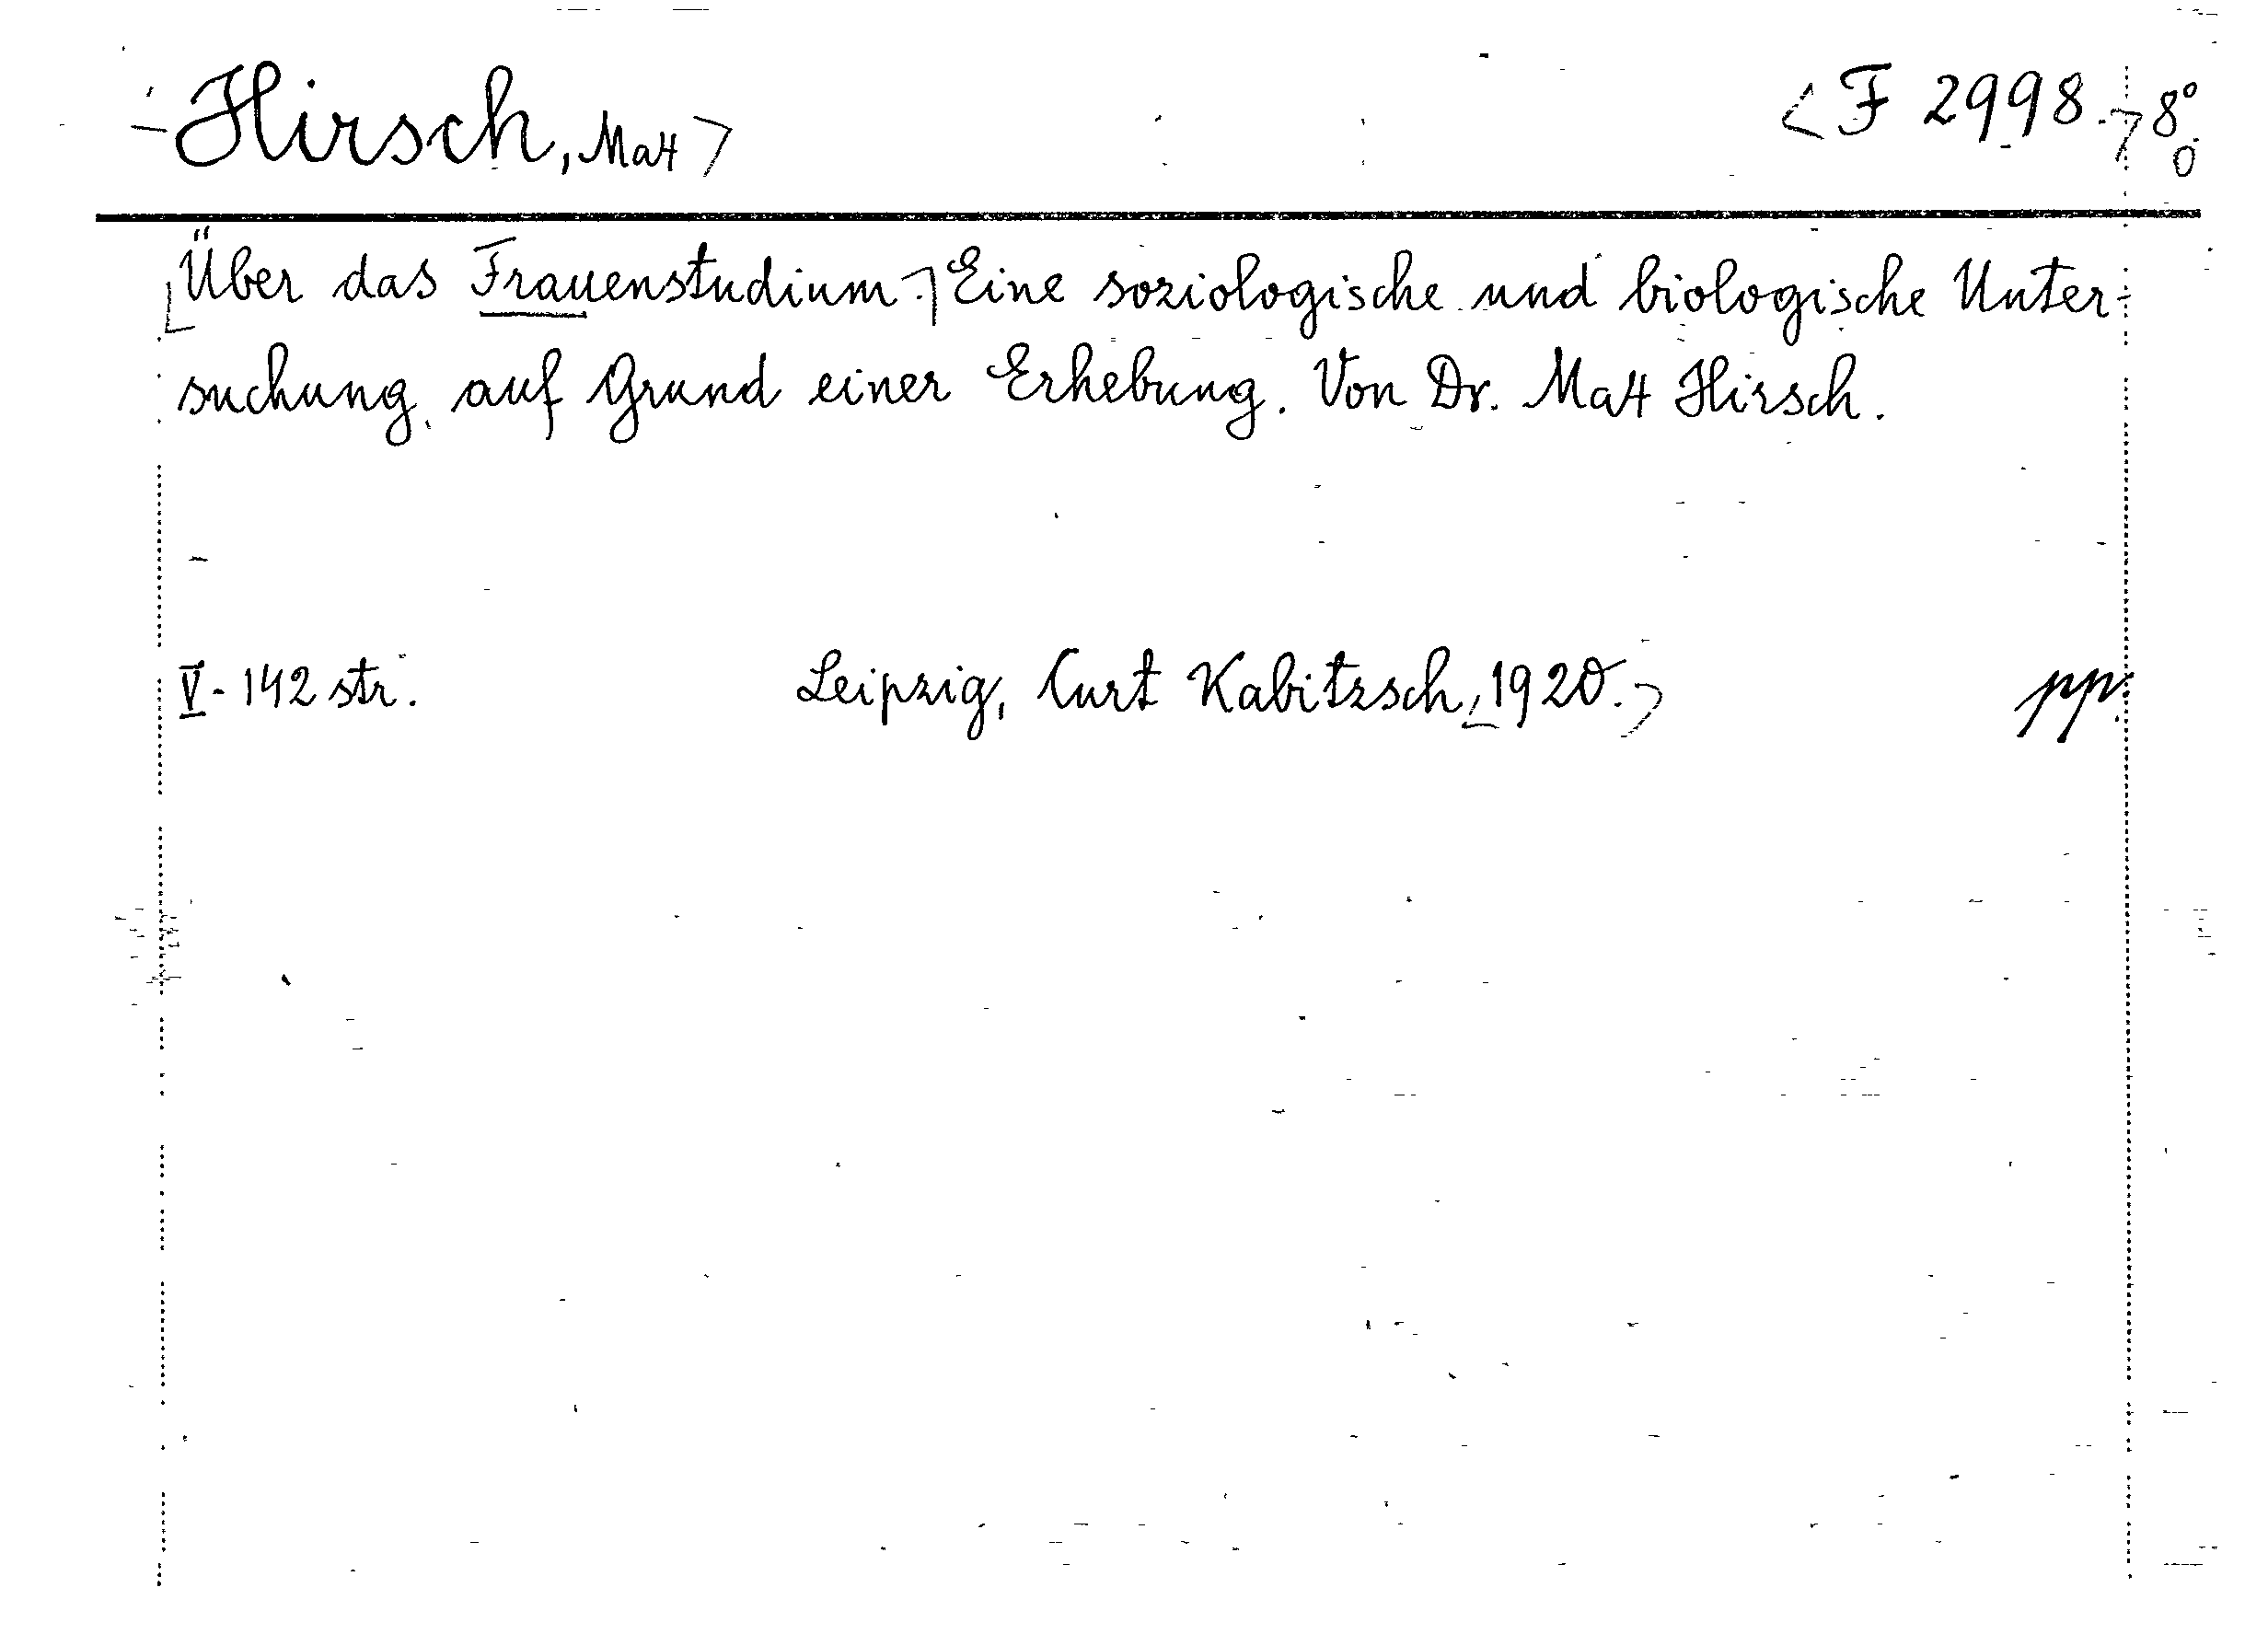 Hirsch, Max
F 2998. 8°
Über das Frauenstudium. Eine soziologische und biologische Unter-
suchung auf Grund einer Erhebung. Von Dr. Max Hirsch.
V - 142 str. Leipzig, Curt Kabitzsch, 1920. pp.